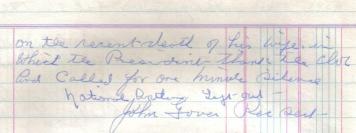 on the recent death of his wife in
which the President thanks the Club
and Called for one minute Silence
National Anthem
John Rec Sect